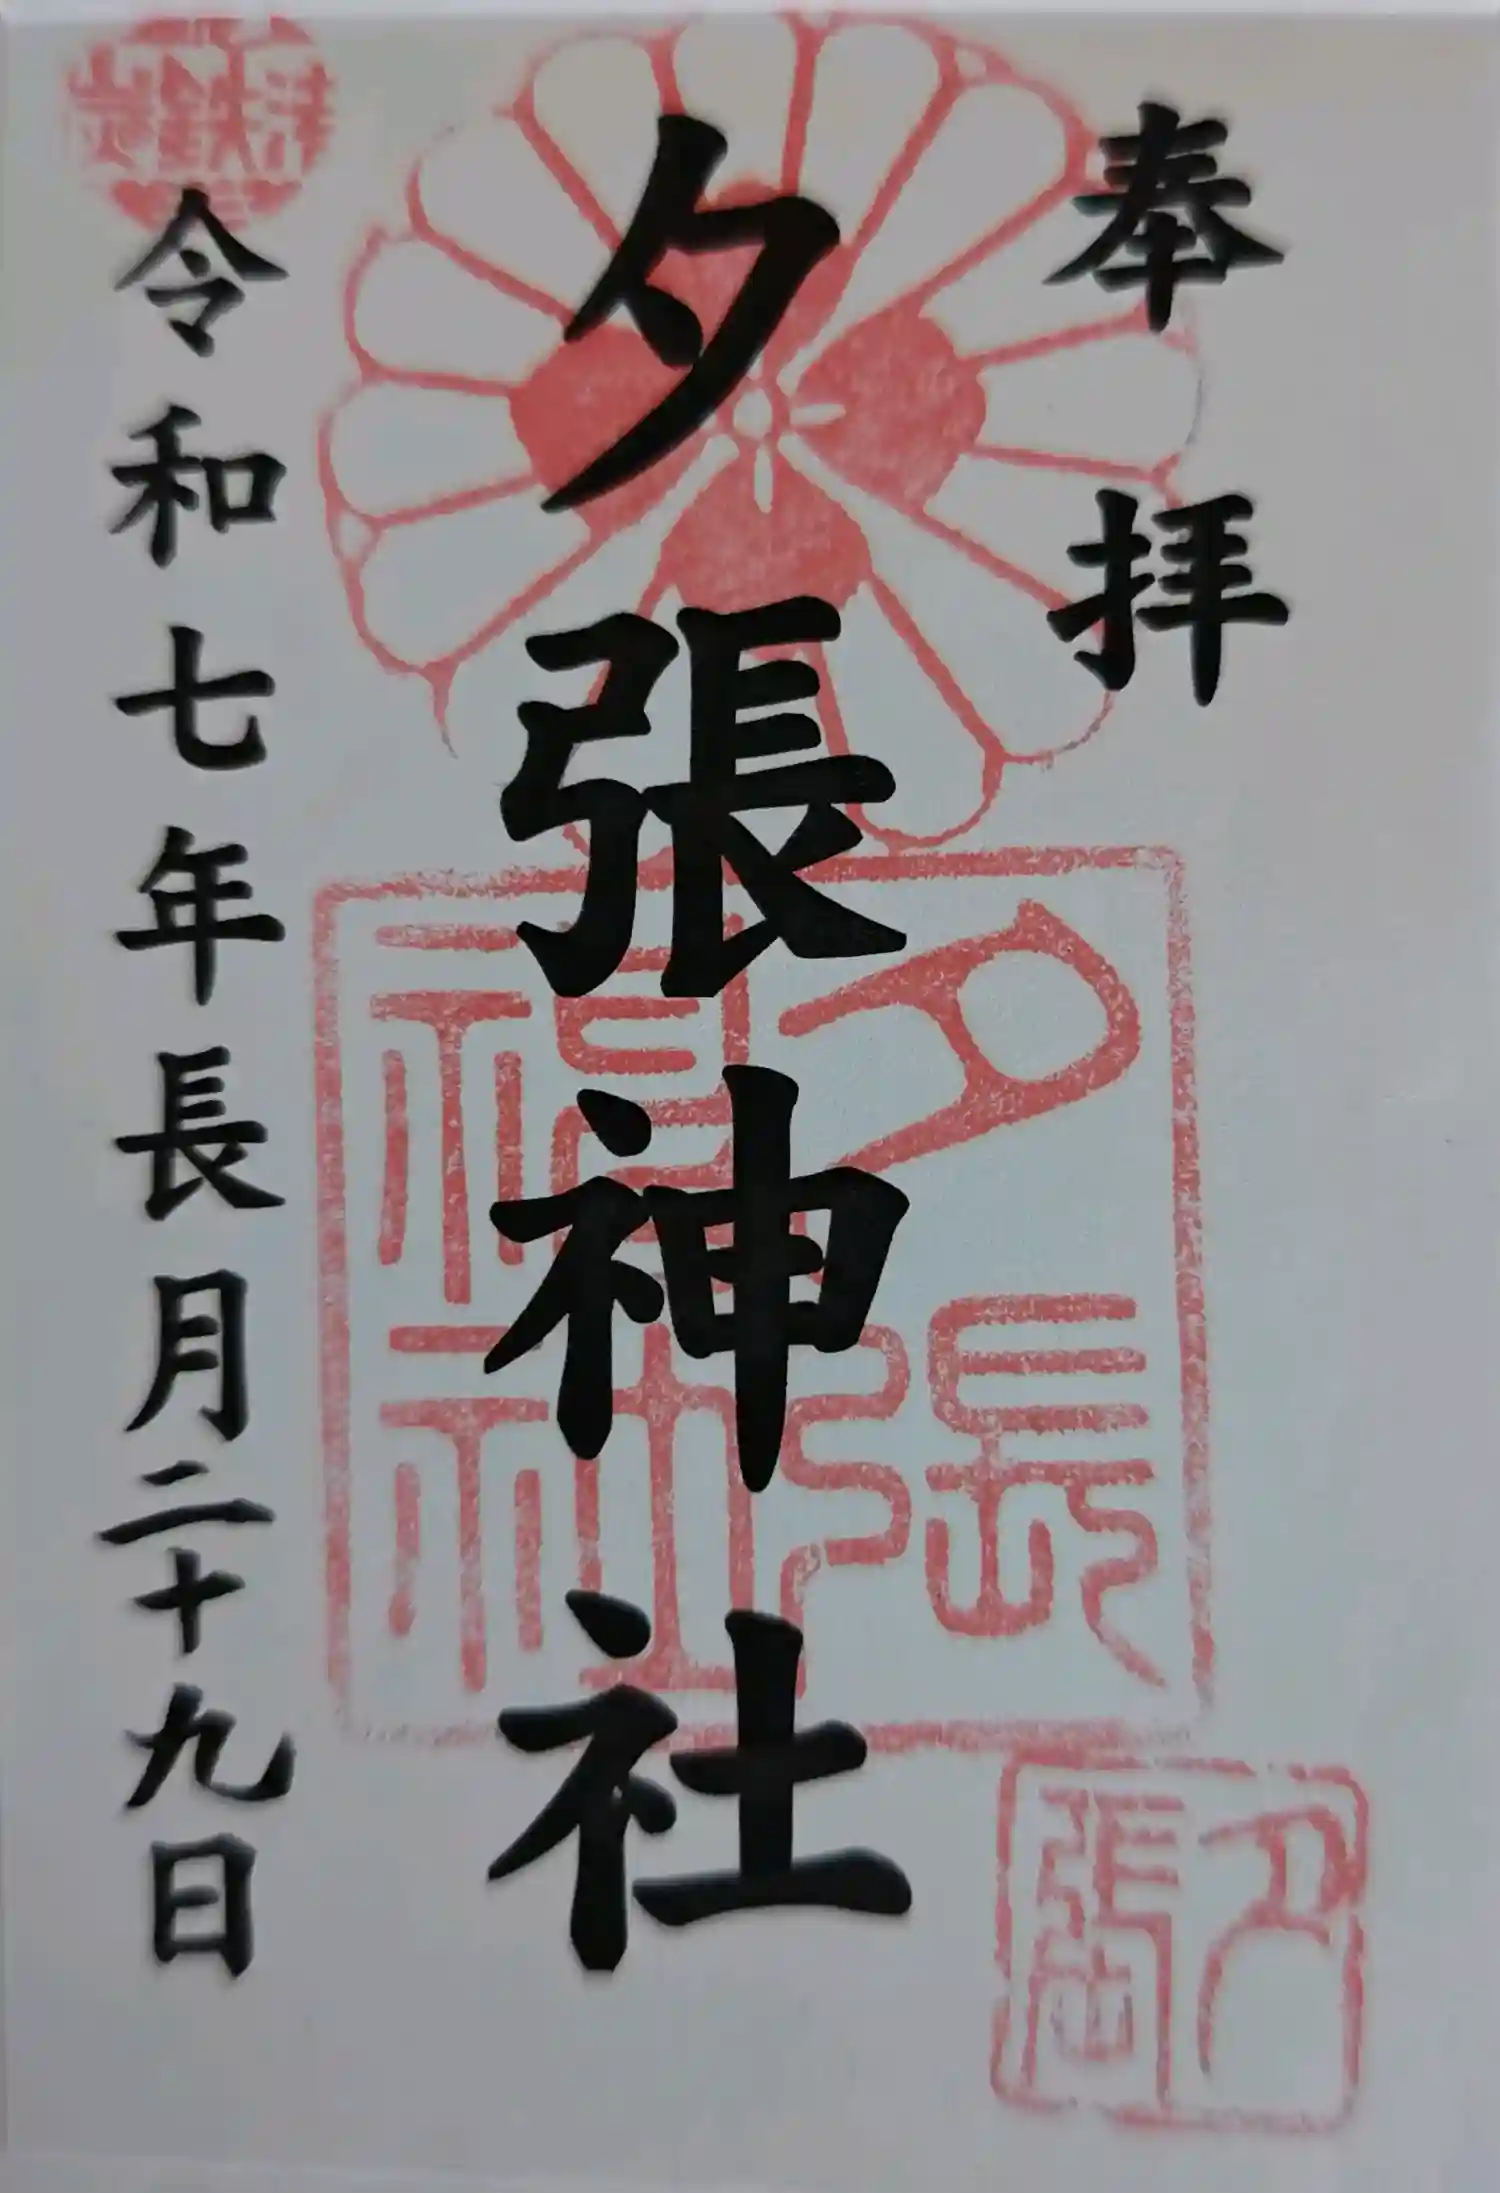 奉拝
夕張神社
令和七年長月二十九日
夕張神社
夕張